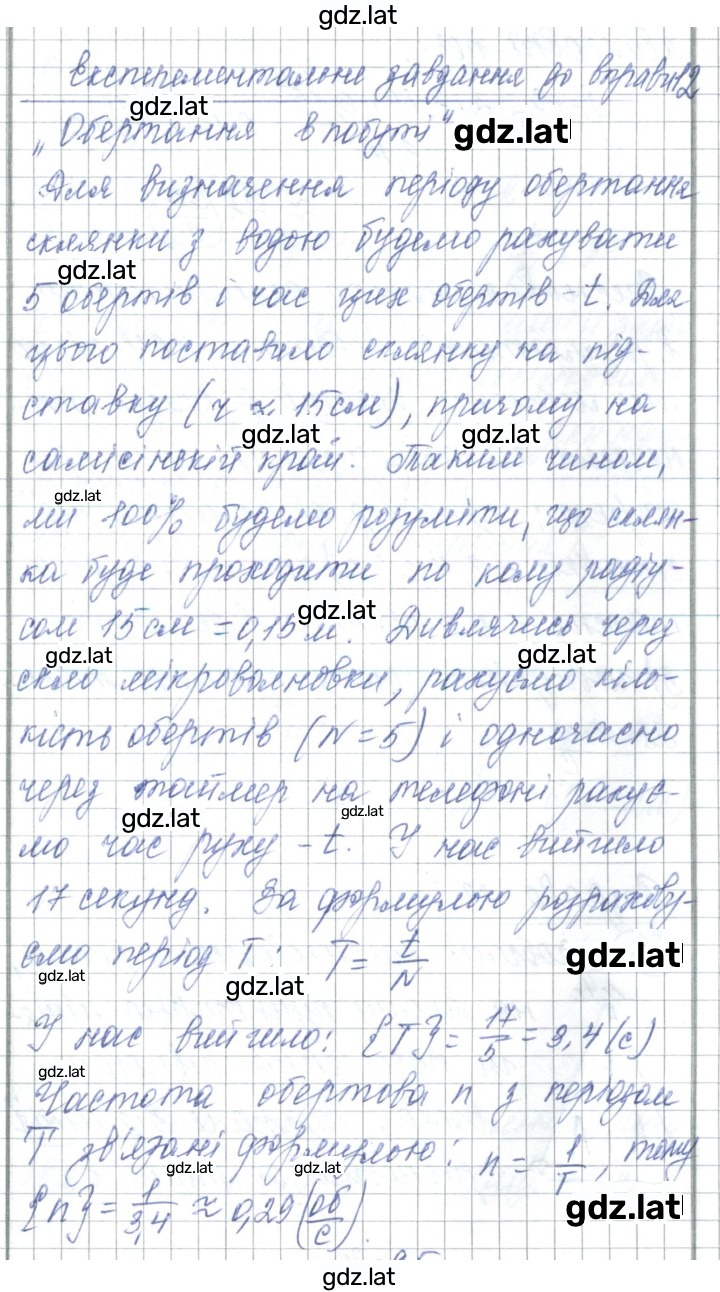 gdz.lat
Експерементальне завдання до вправи 12
gdz.lat
„Обертання в побуті" gdz.lat
Для визначення періоду обертання
склянки з водою будемо рахувати
gdz.lat
5 обертів і час цих обертів - t. Для
цього поставило склянку на під-
ставку (r ≈ 15 см), причому на
gdz.lat gdz.lat
самісінький край. Таким чином,
gdz.lat
ми 100% будемо розуміти, що склян-
ка буде проходити по колу радіу-
gdz.lat
сом 15 см = 0,15 м. Дивлячись через
gdz.lat gdz.lat
скло мікроволновки, рахуємо кіль-
кість обертів (N = 5) і одночасно
через таймер на телефоні рахує-
gdz.lat gdz.lat
мо час руху - t. У нас вийшло
17 секунд. За формулою розрахову-
ємо період T: T = t/N gdz.lat
gdz.lat gdz.lat
У нас вийшло: {T} = 17/5 = 3,4 (с)
gdz.lat
Частота обертова n з періодом
T зв'язані формулою: n = 1/T, тому
gdz.lat gdz.lat
{n} = 1/3,4 ≈ 0,29 (об/с). gdz.lat
gdz.lat